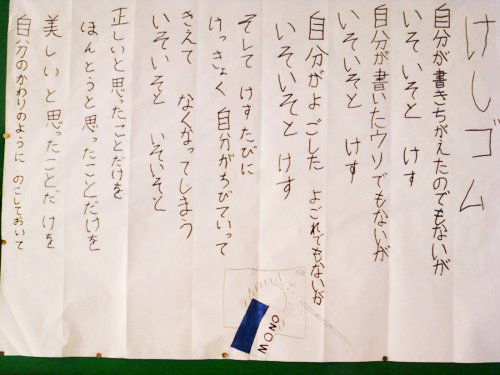 けしゴム
自分が書きちがえたのでもないが
いそいそと けす
自分が書いたウソでもないが
いそいそと けす
自分がよごした よごれでもないが
いそいそと けす
そして けすたびに
けっきょく 自分がちびていって
きえて なくなってしまう
いそいそと いそいそと
正しいと思ったことだけを
ほんとうと思ったことだけを
美しいと思ったことだけを
自分のかわりのように のこしておいて
MONO